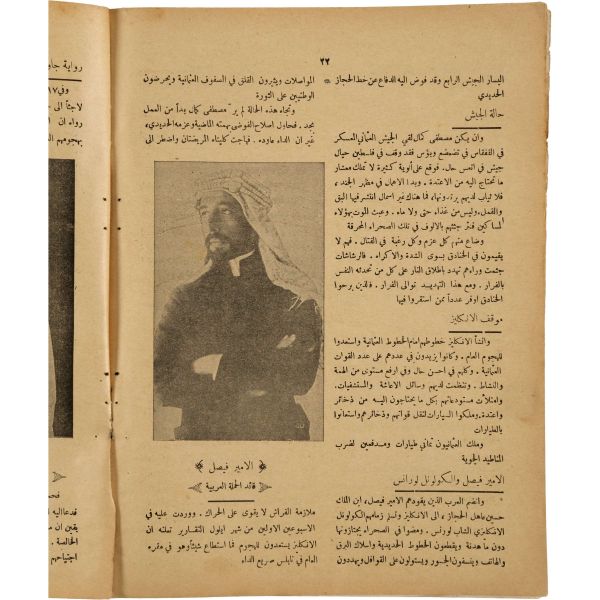 ٢٢
اليسار الجيش الرابع وقد فوض اليه الدفاع عن خط الحجاز
الحديدي
حالة الجيش
وان يكن مصطفى كمال لقي الجيش العثماني المعسكر
في القفقاس في تضعضع وبؤس فقد وقف في فلسطين حيال
جيش في اتعس حال. فوقع على ألوية كثيرة لا تملك معشار
ما تحتاج اليه من الاعتدة. وبدا الاهمال في مظاهر الجند،
فلا ثياب لديهم يرتدونها، فما هناك غير اسمال انتشر فيها البق
والقمل. وليس من غذاء حتى ولا ماء. وعبث الموت بهؤلاء
المساكين فنثر جثثهم بالالوف في تلك الصحراء المحرقة
وضاع منهم كل عزم وكل رغبة في القتال. فهم لا
يقيمون في الخنادق بسوى الشدة والاكراه. فالرشاشات
جثمت وراءهم تهدد باطلاق النار على كل من تحدثه النفس
بالفرار. ومع هذا التهديد توالى الفرار. فالذين برحوا
الخنادق اوفر عدداً ممن استقروا فيها
موقف الانكليز
وانشأ الانكليز خطوطهم امام الخطوط العثمانية واستعدوا
للهجوم العام. وكانوا يزيدون في عددهم على عدد القوات
العثمانية. وكلهم في احسن حال وفي ارفع مستوى من الهمة
والنشاط. وتنظمت لديهم وسائل الاعاشة والمستشفيات.
وامتلأت مستودعاتهم بكل ما يحتاجون اليه من ذخائر
واعتدة. وملكوا السيارات لنقل قواتهم وذخائرهم واستعانوا
بالطيارات
وملك العثمانيون ثماني طيارات ومدفعين لضرب
المناطيد الجوية
الامير فيصل والكولونل لورانس
وانضم العرب الذين يقودهم الامير فيصل، ابن الملك
حسين عاهل الحجاز، الى الانكليز وتسلم زمامهم الكولونل
الانكليزي الشاب لورانس. ومضوا في الصحراء يجتازونها
دون ما هدنة ويقطعون الخطوط الحديدية واسلاك البرق
والهاتف وينسفون الجسور ويستولون على القوافل ويهددون
المواصلات ويثيرون القلق في الصفوف العثمانية ويحرضون
الوطنيين على الثورة
وتجاه هذه الحالة لم ير مصطفى كمال بداً من العمل
بجد. فحاول اصلاح الفوضى بهمته الماضية وعزمه الحديدي،
غير ان الداء عاوده. فهاجت كليتاه المريضتان واضطر الى
الامير فيصل
قائد الحملة العربية
ملازمة الفراش لا يقوى على الحراك. ووردت عليه في
الاسبوعين الاولين من شهر ايلول التقارير تعلنه ان
الانكليز يستعدون للهجوم فما استطاع شيئاً وهو في مقره
العام في نابلس صريع الداء
رواية جا
وفي ١٧
لاجئاً الى
رواه ان
بهجومهم
فحا
يقين ان
الخالصة.
اجتياحهم